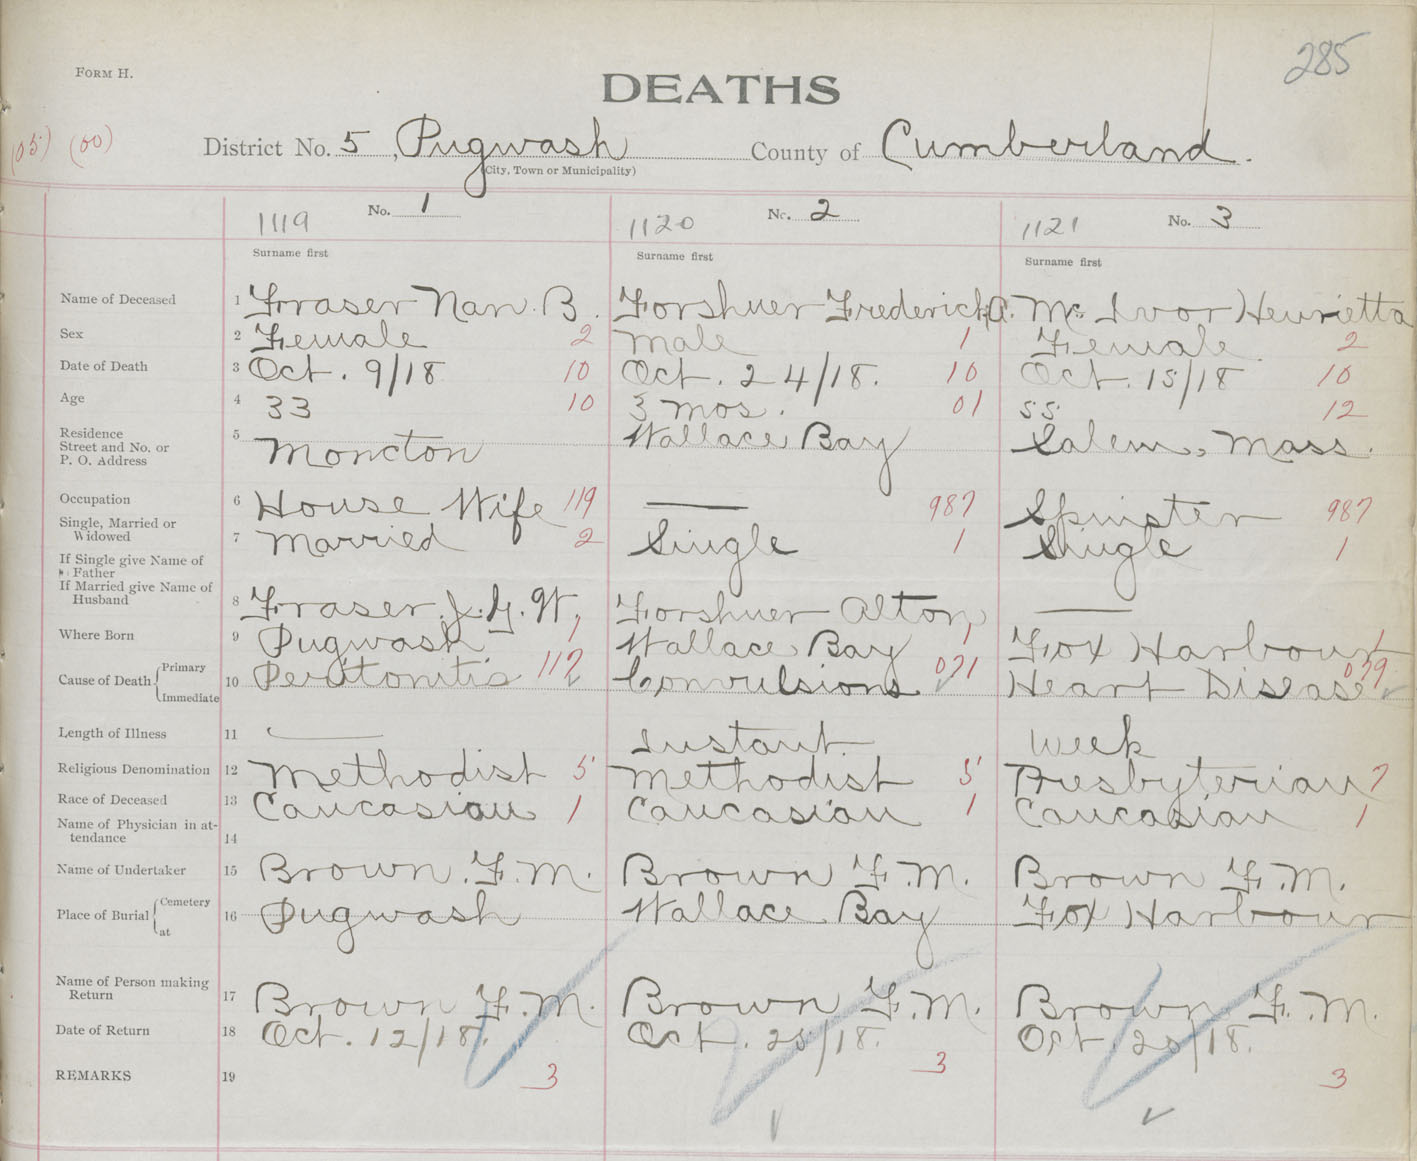 285
FORM H.
DEATHS
(05) (00) District No. 5, Pugwash County of Cumberland.
(City, Town or Municipality)
1119 No. 1 1120 No. 2 1121 No. 3
Surname first Surname first Surname first
Name of Deceased 1 Fraser Nan. B. Forshner Frederick A. McIvor Henrietta
Sex 2 Female 2 Male 1 Female. 2
Date of Death 3 Oct. 9/18 10 Oct. 24/18. 10 Oct. 15/18 10
Age 4 33 10 3 mos. 01 55 12
Residence
Street and No. or
P. O. Address 5 Moncton Wallace Bay Salem, Mass.
Occupation 6 House Wife 119 — 987 Spinster 987
Single, Married or
Widowed 7 Married 2 Single 1 Single 1
If Single give Name of
Father
If Married give Name of
Husband 8 Fraser. J. G. W. Forshner Alton —
Where Born 9 Pugwash 1 Wallace Bay 1 Fox Harbour 1
Cause of Death { Primary
Immediate 10 Peritonitis 112 Convulsions 071 Heart Disease 079
Length of Illness 11 — Instant. Week
Religious Denomination 12 Methodist 5 Methodist 5 Presbyterian 7
Race of Deceased 13 Caucasian 1 Caucasian 1 Caucasian 1
Name of Physician in at-
tendance 14
Name of Undertaker 15 Brown. F. M. Brown F. M. Brown F. M.
Place of Burial { Cemetery
at 16 Pugwash Wallace Bay Fox Harbour
Name of Person making
Return 17 Brown F. M. Brown F. M. Brown F. M.
Date of Return 18 Oct. 12/18. Oct. 25/18. Oct. 20/18.
REMARKS 19 3 3 3